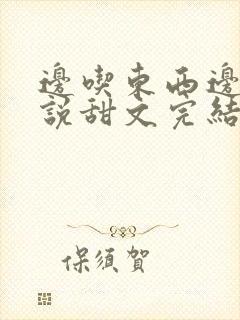 邊喫東西邊
說甜文完結
保須賀